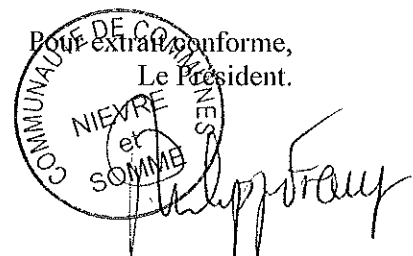 Pour extrait conforme,
Le Président.
COMMUNAUTE DE COMMUNES
NIEVRE
et
SOMME